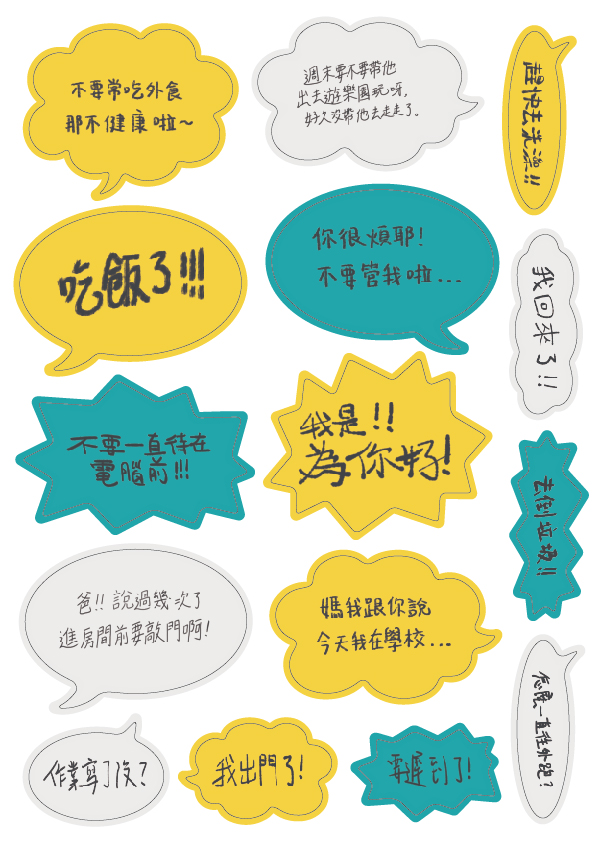 不要常吃外食
那不健康啦~
週末要不要帶他
出去遊樂園玩呀,
好久沒帶他去走走了。
趕快去洗澡!!
吃飯了!!!
你很煩耶!
不要管我啦...
我回來了!!
不要一直待在
電腦前!!!
我是!!
為你好!
去倒垃圾!!
爸!!說過幾次了
進房間前要敲門啊!
媽我跟你說
今天我在學校...
怎麼一直往外跑?
作業寫了沒?
我出門了!
要遲到了!